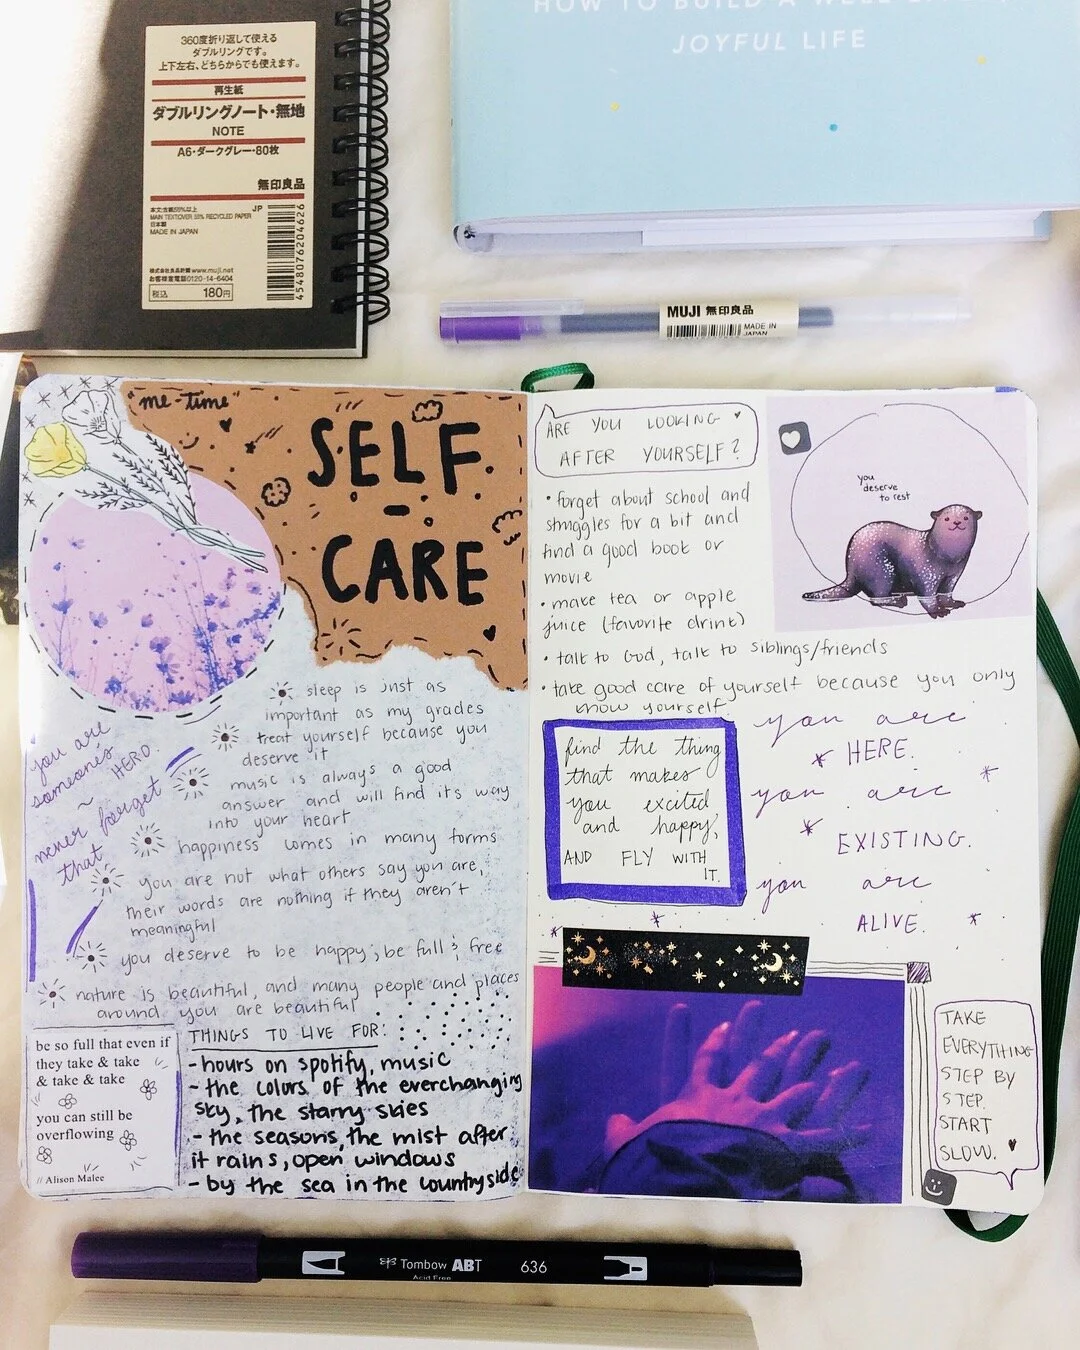 360度折り返して使える
ダブルリングです。
上下左右、どちらからでも使えます。
再生紙
ダブルリングノート・無地
NOTE
A6・ダークグレー・80枚
無印良品
MADE IN JAPAN
JP
日本製
MADE IN JAPAN
www.muji.net
お客様室電話0120-14-6404
税込 180円
4548076204626
HOW TO BUILD A WELL-LIVED,
JOYFUL LIFE
MUJI 無印良品
MADE IN
JAPAN
"me-time"
SELF
-
CARE
you are
someones
HERO.
~
never forget
that
sleep is just as
important as my grades
treat yourself because you
deserve it
music is always a good
answer and will find its way
into your heart
happiness comes in many forms
you are not what others say you are,
their words are nothing if they aren't
meaningful
you deserve to be happy; be full & free
nature is beautiful, and many people and places
around you are beautiful
be so full that even if
they take & take
& take & take
you can still be
overflowing
// Alison Malee
THINGS TO LIVE FOR:
-hours on spotify, music
-the colors of the everchanging
sky, the starry skies
-the seasons, the mist after
it rains, open windows
-by the sea in the countryside
ARE YOU LOOKING
AFTER YOURSELF?
• forget about school and
struggles for a bit and
find a good book or
movie
• make tea or apple
juice (favorite drink)
• talk to God, talk to siblings/friends
• take good care of yourself because you only
know yourself.
you
deserve
to rest
find the thing
that makes
you excited
and happy,
AND FLY WITH
IT.
you are
HERE.
you are
EXISTING.
you are
ALIVE.
TAKE
EVERYTHING
STEP BY
STEP.
START
SLOW.
Tombow ABT 636
Acid Free